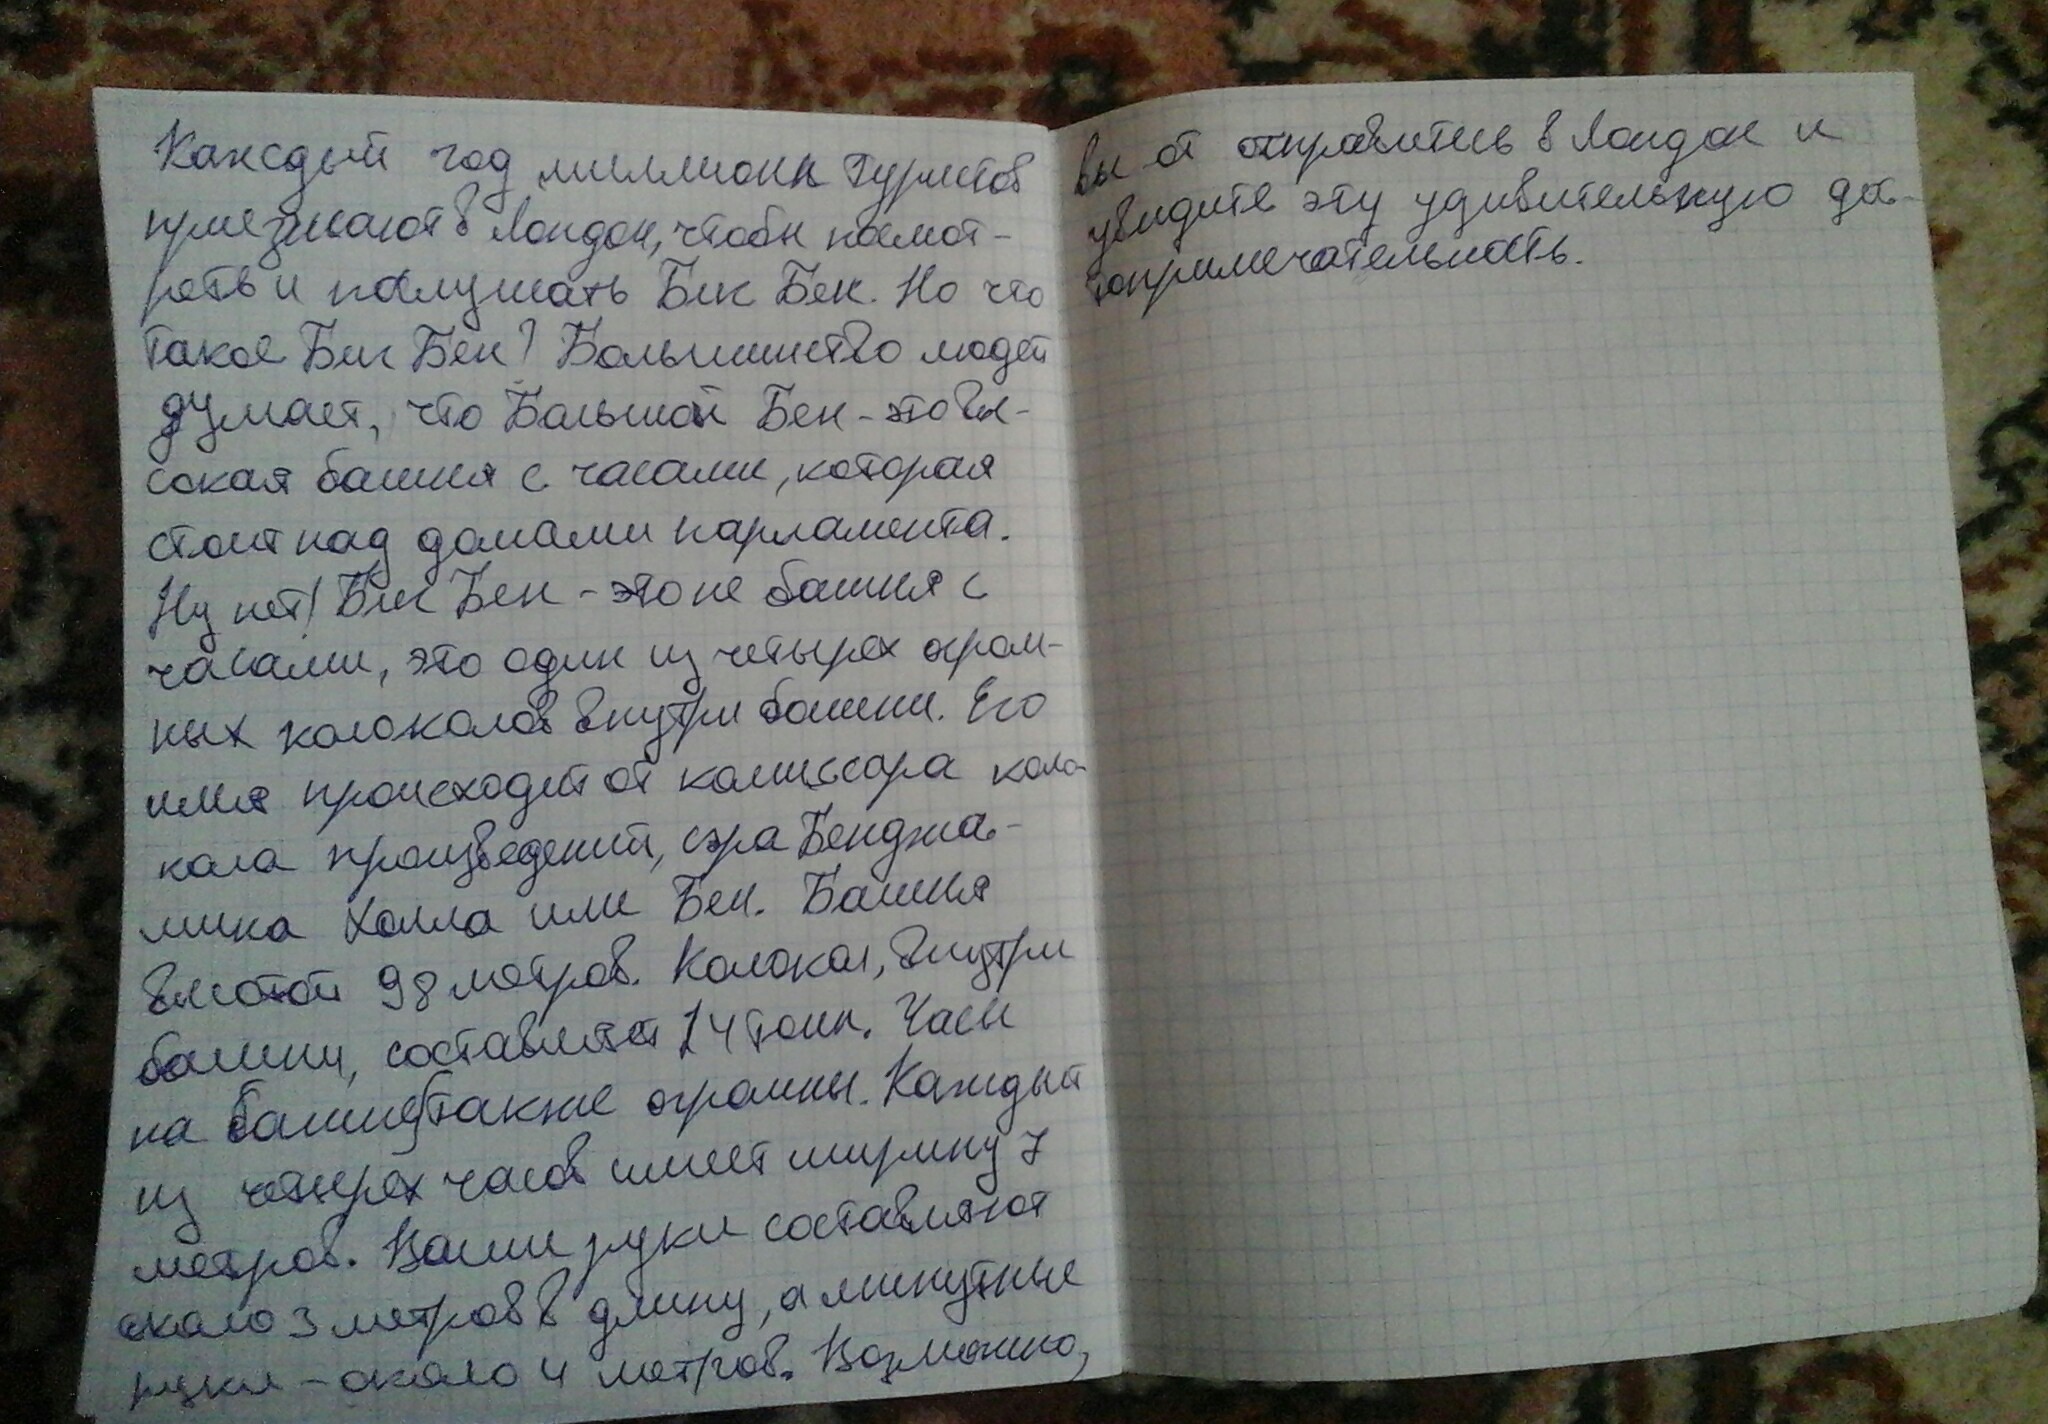 Каждый год миллионы туристов
приезжают в Лондон, чтобы посмот-
реть и послушать Биг Бен. Но что
такое Биг Бен? Большинство людей
думает, что Большой Бен - это вы-
сокая башня с часами, которая
стоит над домами парламента.
Ну нет! Биг Бен - это не башня с
часами, это один из четырех огром-
ных колоколов внутри башни. Его
имя происходит от комиссара коло-
кола произведений, сэра Бенджа-
мина Холла или Бен. Башня
высотой 98 метров. Колокол, внутри
башни, составляет 14 тонн. Часы
на башне также огромны. Каждый
из четырёх часов имеет ширину 7
метров. Ваши руки составляют
около 3 метров в длину, а минутные
руки - около 4 метров. Возможно,
вы от отправитесь в Лондон и
увидите эту удивительную дос-
топримечательность.